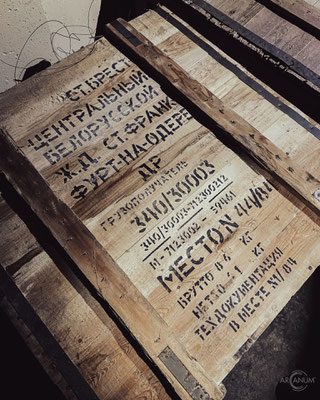 СТ.БРЕСТ
ЦЕНТРАЛЬНЫЙ
БЕЛОРУССКОЙ
Ж.Д. СТ ФРАНК
ФУРТ-НА-ОДЕРЕ
ДР
ГРУЗОПОЛУЧАТЕЛЬ
340/30003
340/30003-712300212
МЕСТО N 44/
БРУТТО 86 КГ
НЕТТО 41 КГ
ТЕХДОКУМЕНТАЦИЯ
В МЕСТЕ N1/
ARCANUM